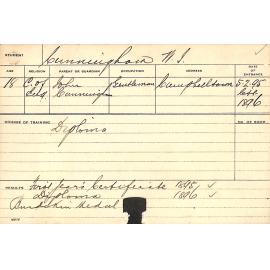 STUDENT Cunningham W. J.
AGE RELIGION PARENT OR GUARDIAN OCCUPATION ADDRESS DATE OF ENTRANCE
18 C. of Eng. John Cunningham Gentleman Campbelltown 5.2.95
1896
COURSE OF TRAINING NO. OF ROOM
Diploma
RESULTS First Year's Certificate 1895 ✓
Diploma 1896 ✓
Burdekin Medal
NOTE